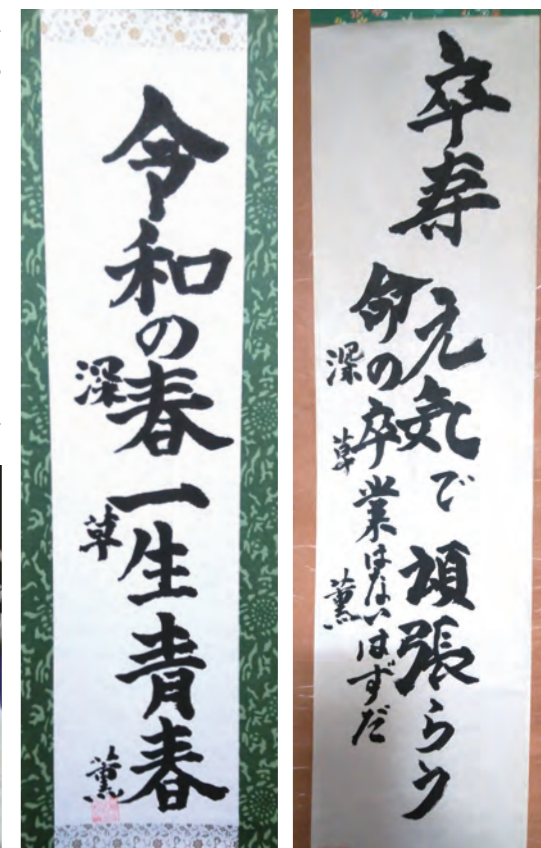 卒寿
元気で頑張らう
命の卒業はないはずだ
深草薫
令和の春一生青春
深草薫